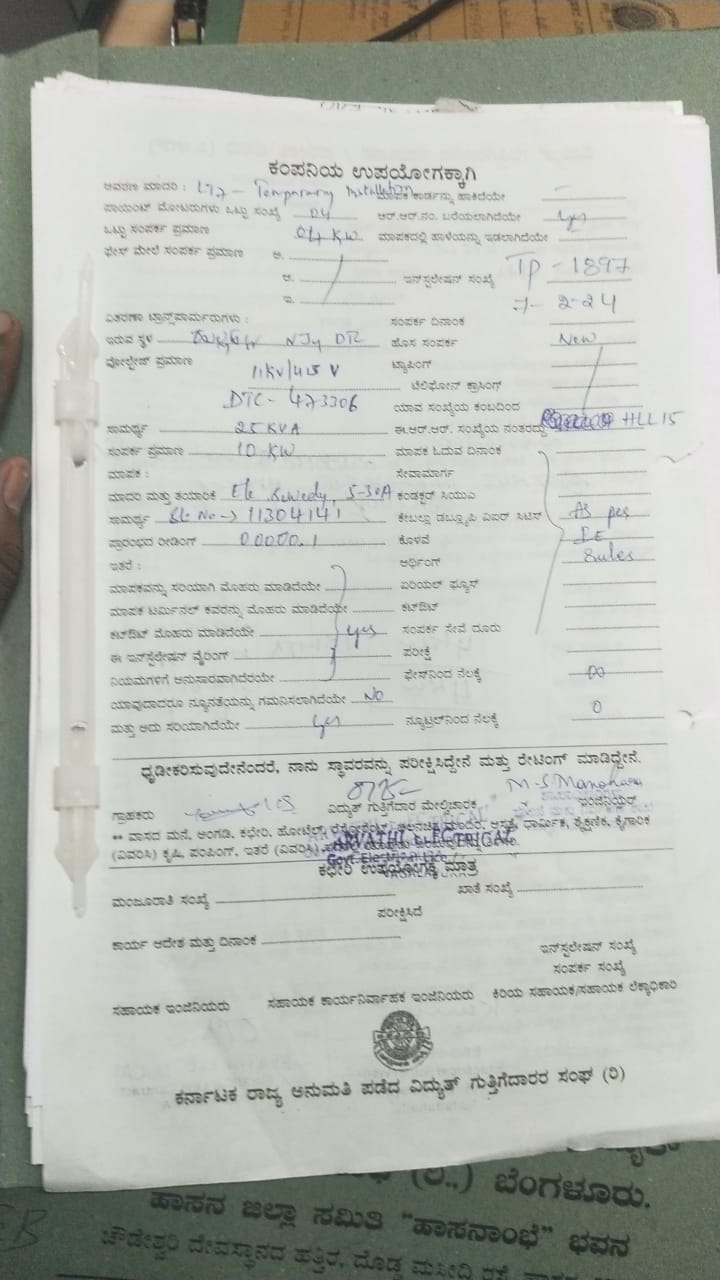 ಕಂಪನಿಯ ಉಪಯೋಗಕ್ಕಾಗಿ
ಆವರಣ ಮಾದರಿ : LT7 - Temporary Installation ಮಾಪಕ ಕಾರ್ಡನ್ನು ಹಾಕಿದೆಯೇ
ಪಾಯಿಂಟ್ ಮೋಟರುಗಳು ಒಟ್ಟು ಸಂಖ್ಯೆ 04 ಆರ್.ಆರ್.ನಂ. ಬರೆಯಲಾಗಿದೆಯೇ yes
ಒಟ್ಟು ಸಂಪರ್ಕ ಪ್ರಮಾಣ 04 KW ಮಾಪಕದಲ್ಲಿ ಹಾಳೆಯನ್ನು ಇಡಲಾಗಿದೆಯೇ
ಫೇಸ್ ಮೇಲೆ ಸಂಪರ್ಕ ಪ್ರಮಾಣ ಅ.
ಆ. ಇನ್ಸ್‌ಟಲೇಷನ್ ಸಂಖ್ಯೆ TP - 1897
ಇ. 7-2-24
ವಿತರಣಾ ಟ್ರಾನ್ಸ್‌ಫಾರ್ಮರುಗಳು : ಸಂಪರ್ಕ ದಿನಾಂಕ
ಇರುವ ಸ್ಥಳ DTC ಹೊಸ ಸಂಪರ್ಕ New
ವೋಲ್ಟೇಜ್ ಪ್ರಮಾಣ 11KV/415 V ಟ್ಯಾಪಿಂಗ್
ಟೆಲಿಫೋನ್ ಕ್ರಾಸಿಂಗ್
DTC - 473306 ಯಾವ ಸಂಖ್ಯೆಯ ಕಂಬದಿಂದ
ಸಾಮರ್ಥ್ಯ 25 KVA ಈ.ಆರ್.ಆರ್. ಸಂಖ್ಯೆಯ ನಂತರದ್ದು HLL 15
ಸಂಪರ್ಕ ಪ್ರಮಾಣ 10 KW ಮಾಪಕ ಓದುವ ದಿನಾಂಕ
ಮಾಪಕ : ಸೇವಾಮಾರ್ಗ
ಮಾದರಿ ಮತ್ತು ತಯಾರಿಕೆ 5-30A ಕಂಡಕ್ಟರ್ ಸಿಯುಎ
ಸಾಮರ್ಥ್ಯ Sl. No -> 11304141 ಕೇಬಲ್ಲು ಡಬ್ಲ್ಯೂಪಿ ಏಐರ್ ಸಿಟಿಸ್ As per
ಪ್ರಾರಂಭದ ರೀಡಿಂಗ್ 00000.1 ಕೊಳವೆ IE
ಇತರೆ : ಅರ್ಥಿಂಗ್ Rules
ಮಾಪಕವನ್ನು ಸರಿಯಾಗಿ ಮೊಹರು ಮಾಡಿದೆಯೇ ಏರಿಯಲ್ ಫ್ಯೂಸ್
ಮಾಪಕ ಟರ್ಮಿನಲ್ ಕವರನ್ನು ಮೊಹರು ಮಾಡಿದೆಯೇ ಕಟ್‌ಔಟ್
ಕಟ್‌ಔಟ್ ಮೊಹರು ಮಾಡಿದೆಯೇ yes ಸಂಪರ್ಕ ಸೇವೆ ದೂರು
ಈ ಇನ್ಸ್‌ಟಲೇಷನ್ ವೈರಿಂಗ್ ಪರೀಕ್ಷೆ
ನಿಯಮಗಳಿಗೆ ಅನುಸಾರವಾಗಿದೆರಯೇ ಫೇಸ್‌ನಿಂದ ನೆಲಕ್ಕೆ ∞
ಯಾವುದಾದರೂ ನ್ಯೂನತೆಯನ್ನು ಗಮನಿಸಲಾಗಿದೆಯೇ No
ಮತ್ತು ಅದು ಸರಿಯಾಗಿದೆಯೇ yes ನ್ಯೂಟ್ರಲ್‌ನಿಂದ ನೆಲಕ್ಕೆ 0
ಧೃಡೀಕರಿಸುವುದೇನೆಂದರೆ, ನಾನು ಸ್ಥಾವರವನ್ನು ಪರೀಕ್ಷಿಸಿದ್ದೇನೆ ಮತ್ತು ರೇಟಿಂಗ್ ಮಾಡಿದ್ದೇನೆ.
M.S Manohara
ಗ್ರಾಹಕರು ವಿದ್ಯುತ್ ಗುತ್ತಿಗೆದಾರ ಮೇಲ್ವಿಚಾರಕ ಇಂಜಿನಿಯರ್
** ವಾಸದ ಮನೆ, ಅಂಗಡಿ, ಕಛೇರಿ, ಹೋಟೆಲ್, ಆಸ್ಪತ್ರೆ, ಧಾರ್ಮಿಕ, ಶೈಕ್ಷಣಿಕ, ಕೈಗಾರಿಕ
(ವಿವರಿಸಿ) ಕೃಷಿ, ಪಂಪಿಂಗ್, ಇತರೆ (ವಿವರಿಸಿ) ELECTRICAL
ಕಛೇರಿ ಉಪಯೋಗಕ್ಕೆ ಮಾತ್ರ
ಮಂಜೂರಾತಿ ಸಂಖ್ಯೆ ಖಾತೆ ಸಂಖ್ಯೆ
ಪರೀಕ್ಷಿಸಿದೆ
ಕಾರ್ಯ ಆದೇಶ ಮತ್ತು ದಿನಾಂಕ
ಇನ್‌ಸ್ಟಲೇಷನ್ ಸಂಖ್ಯೆ
ಸಂಪರ್ಕ ಸಂಖ್ಯೆ
ಸಹಾಯಕ ಇಂಜಿನಿಯರು ಸಹಾಯಕ ಕಾರ್ಯನಿರ್ವಾಹಕ ಇಂಜಿನಿಯರು ಕಿರಿಯ ಸಹಾಯಕ/ಸಹಾಯಕ ಲೆಕ್ಕಾಧಿಕಾರಿ
ಕರ್ನಾಟಕ ರಾಜ್ಯ ಅನುಮತಿ ಪಡೆದ ವಿದ್ಯುತ್ ಗುತ್ತಿಗೆದಾರರ ಸಂಘ (ರಿ)
(ರಿ..) ಬೆಂಗಳೂರು.
ಹಾಸನ ಜಿಲ್ಲಾ ಸಮಿತಿ "ಹಾಸನಾಂಭೆ" ಭವನ
ಚೌಡೇಶ್ವರಿ ದೇವಸ್ಥಾನದ ಹತ್ತಿರ, ದೊಡ್ಡ ಮಸೀದಿ ರಸ್ತೆ,